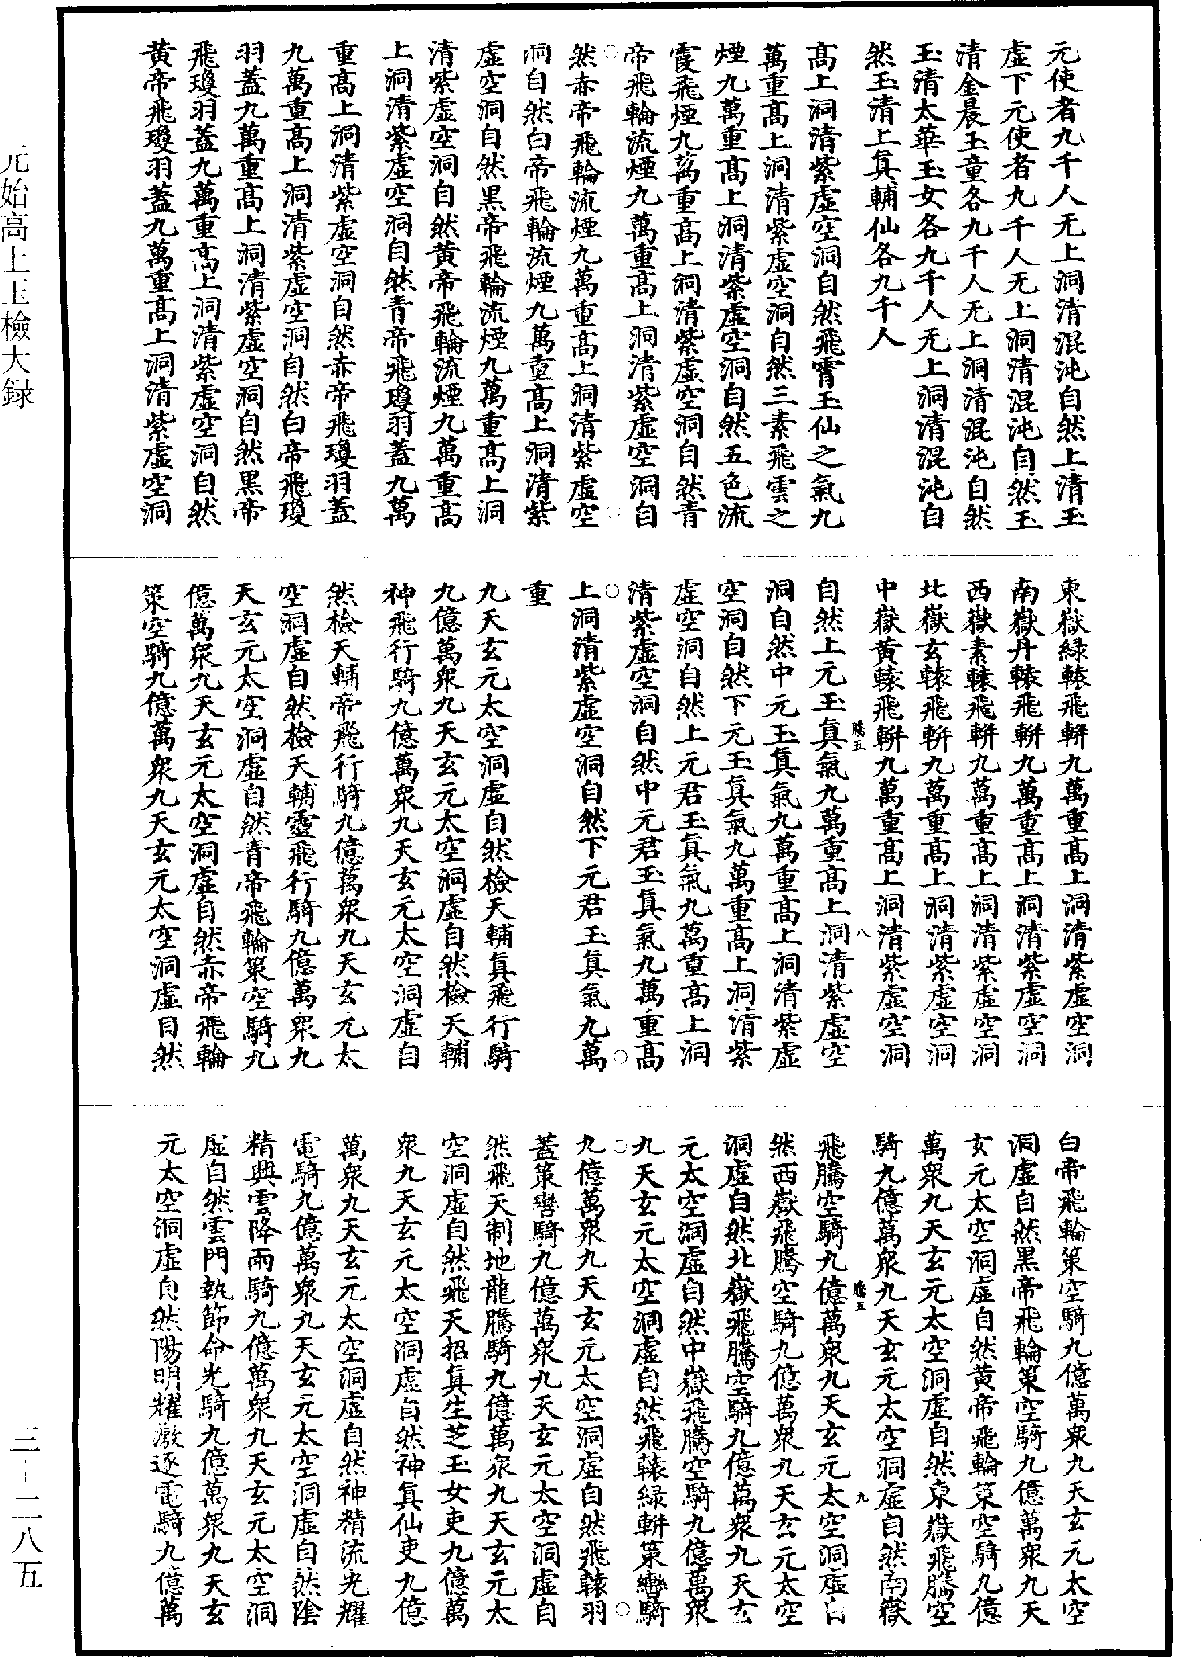 元使者九千人无上洞清混沌自然上清玉
虛下元使者九千人无上洞清混沌自然玉
清金晨玉童各九千人无上洞清混沌自然
玉清太華玉女各九千人无上洞清混沌自
然玉清上真輔仙各九千人
高上洞清紫虛空洞自然飛霄玉仙之氣九
萬重高上洞清紫虛空洞自然三素飛雲之
煙九萬重高上洞清紫虛空洞自然五色流
霞飛煙九萬重高上洞清紫虛空洞自然青
帝飛輪流煙九萬重高上洞清紫虛空洞自
然赤帝飛輪流煙九萬重高上洞清紫虛空
洞自然白帝飛輪流煙九萬重高上洞清紫
虛空洞自然黑帝飛輪流煙九萬重高上洞
清紫虛空洞自然黃帝飛輪流煙九萬重高
上洞清紫虛空洞自然青帝飛瓊羽蓋九萬
重高上洞清紫虛空洞自然赤帝飛瓊羽蓋
九萬重高上洞清紫虛空洞自然白帝飛瓊
羽蓋九萬重高上洞清紫虛空洞自然黑帝
飛瓊羽蓋九萬重高上洞清紫虛空洞自然
黃帝飛瓊羽蓋九萬重高上洞清紫虛空洞
東嶽綠轅飛軿九萬重高上洞清紫虛空洞
南嶽丹轅飛軿九萬重高上洞清紫虛空洞
西嶽素轅飛軿九萬重高上洞清紫虛空洞
北嶽玄轅飛軿九萬重高上洞清紫虛空洞
中嶽黃轅飛軿九萬重高上洞清紫虛空洞
騰五 八
自然上元玉真氣九萬重高上洞清紫虛空
洞自然中元玉真氣九萬重高上洞清紫虛
空洞自然下元玉真氣九萬重高上洞清紫
虛空洞自然上元君玉真氣九萬重高上洞
清紫虛空洞自然中元君玉真氣九萬重高
上洞清紫虛空洞自然下元君玉真氣九萬
重
九天玄元太空洞虛自然檢天輔真飛行騎
九億萬眾九天玄元太空洞虛自然檢天輔
神飛行騎九億萬眾九天玄元太空洞虛自
然檢天輔帝飛行騎九億萬眾九天玄元太
空洞虛自然檢天輔靈飛行騎九億萬眾九
天玄元太空洞虛自然青帝飛輪策空騎九
億萬眾九天玄元太空洞虛自然赤帝飛輪
策空騎九億萬眾九天玄元太空洞虛自然
白帝飛輪策空騎九億萬眾九天玄元太空
洞虛自然黑帝飛輪策空騎九億萬眾九天
玄元太空洞虛自然黃帝飛輪策空騎九億
萬眾九天玄元太空洞虛自然東嶽飛騰空
騎九億萬眾九天玄元太空洞虛自然南嶽
騰五 九
飛騰空騎九億萬眾九天玄元太空洞虛自
然西嶽飛騰空騎九億萬眾九天玄元太空
洞虛自然北嶽飛騰空騎九億萬眾九天玄
元太空洞虛自然中嶽飛騰空騎九億萬眾
九天玄元太空洞虛自然飛轅綠軿策轡騎
九億萬眾九天玄元太空洞虛自然飛轅羽
蓋策轡騎九億萬眾九天玄元太空洞虛自
然飛天制地龍騰騎九億萬眾九天玄元太
空洞虛自然飛天招真生芝玉女吏九億萬
眾九天玄元太空洞虛自然神真仙吏九億
萬眾九天玄元太空洞虛自然神精流光耀
電騎九億萬眾九天玄元太空洞虛自然陰
精興雲降雨騎九億萬眾九天玄元太空洞
虛自然雲門執節命光騎九億萬眾九天玄
元太空洞虛自然陽明耀激逐電騎九億萬
元始高上玉檢大録
三-二八五